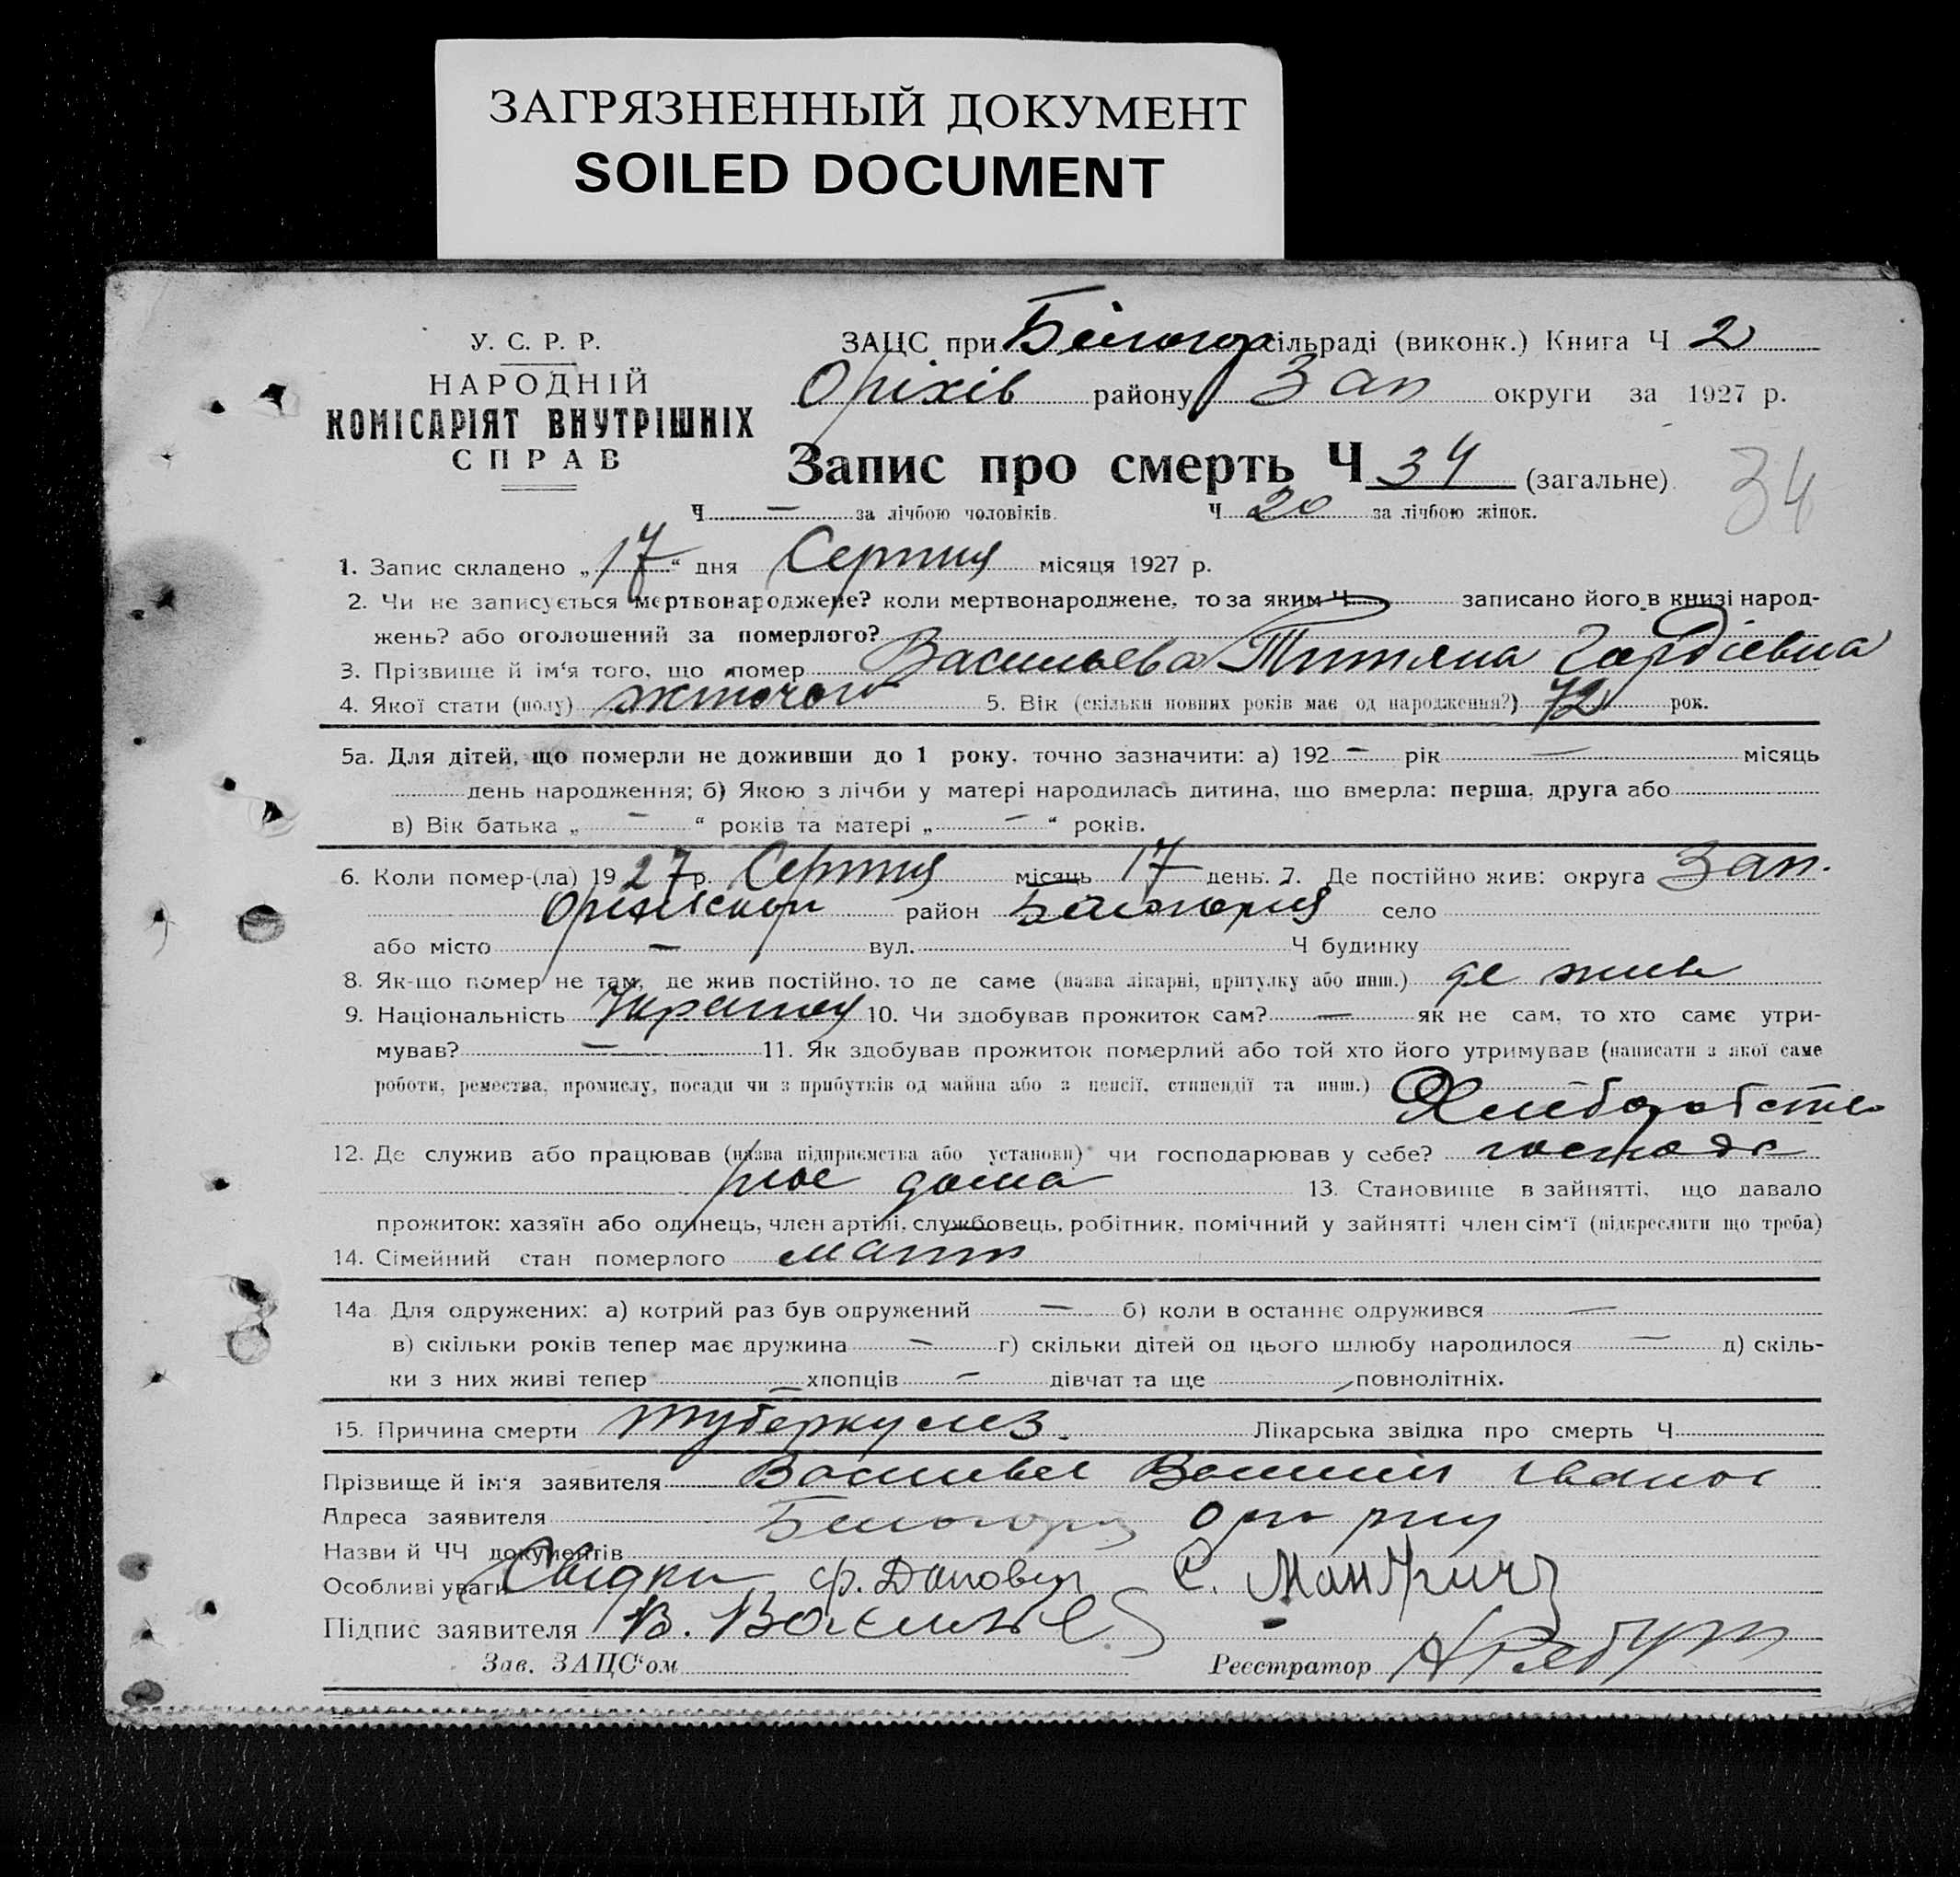 ЗАГРЯЗНЕННЫЙ ДОКУМЕНТ
SOILED DOCUMENT
У. С. Р. Р.
НАРОДНІЙ
КОМІСАРІЯТ ВНУТРІШНІХ
СПРАВ
ЗАЦС при Білогор сільраді (виконк.) Книга Ч 2
Оріхів району Зап округи за 1927 р.
Запис про смерть Ч 34 (загальне).
34
Ч — за лічбою чоловіків. Ч 20 за лічбою жінок.
1. Запис складено „17“ дня Серпня місяця 1927 р.
2. Чи не записується мертвонароджене? коли мертвонароджене, то за яким Ч записано його в книзі народ-
жень? або оголошений за померлого?
3. Прізвище й ім‘я того, що помер Васильева Титяна Гордіевна
4. Якої стати (полу) жіночої 5. Вік (скільки повних років має од народження?) 72 рок.
5а. Для дітей, що померли не доживши до 1 року, точно зазначити: а) 192 — рік — місяць
день народження; б) Якою з лічби у матері народилась дитина, що вмерла: перша, друга або
в) Вік батька „ — “ років та матері „ — “ років.
6. Коли помер-(ла) 1927 р. Серпня місяць 17 день. 7. Де постійно жив: округа Зап.
район Білогория село
або місто — вул. Ч будинку
8. Як-що помер не там, де жив постійно, то де саме (назва лікарні, притулку або инш.) де жив
9. Національність 10. Чи здобував прожиток сам? — як не сам, то хто саме утри-
мував? — 11. Як здобував прожиток померлий або той хто його утримував (написати з якої саме
роботи, ремества, промислу, посади чи з прибутків од майна або з пенсії, стипендії та инш.)
Хліборобство
12. Де служив або працював (назва підприємства або установи) чи господарював у себе? господа
рює дома 13. Становище в зайнятті, що давало
прожиток: хазяїн або одинець, член артілі, службовець, робітник, помічний у зайнятті член сім‘ї (підкреслити що треба)
14. Сімейний стан померлого мати
14а Для одружених: а) котрий раз був одружений — б) коли в останнє одружився —
в) скільки років тепер має дружина — г) скільки дітей од цього шлюбу народилося — д) скіль-
ки з них живі тепер — хлопців — дівчат та ще повнолітніх.
15. Причина смерти туберкульоз. Лікарська звідка про смерть Ч
Прізвище й ім‘я заявителя Васильев Василий Іванов
Адреса заявителя Білогорія Оріх рну
Назви й ЧЧ документів
Особливі уваги Свідки
Підпис заявителя В. Васильев
Зав. ЗАЦС‘ом Реєстратор